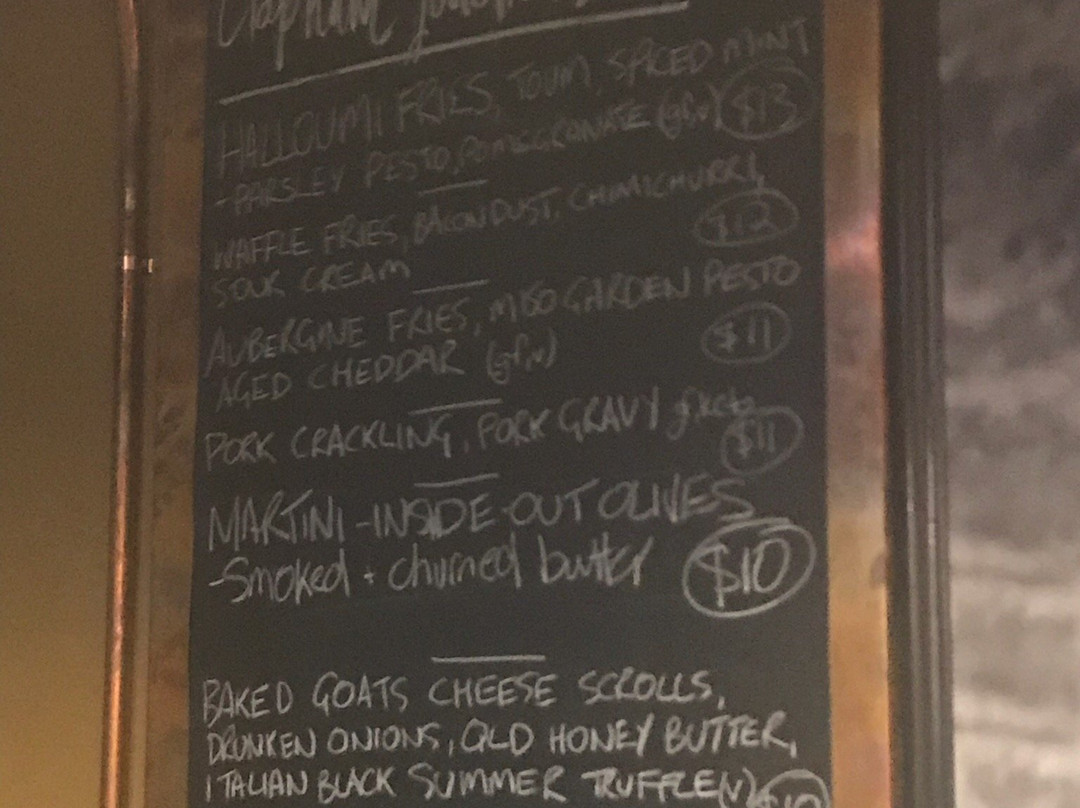 Clapham Junction
HALLOUMI FRIES, TOUM, SPICED MINT
- PARSLEY PESTO, POMEGRANATE (gf,v) $13
WAFFLE FRIES, BACON DUST, CHIMICHURRI,
SOUR CREAM $12
AUBERGINE FRIES, MISO GARDEN PESTO
AGED CHEDDAR (gf,v) $11
PORK CRACKLING, PORK GRAVY $11
MARTINI - INSIDE-OUT OLIVES
- Smoked + churned butter $10
BAKED GOATS CHEESE SCROLLS,
DRUNKEN ONIONS, QLD HONEY BUTTER,
ITALIAN BLACK SUMMER TRUFFLE (V)